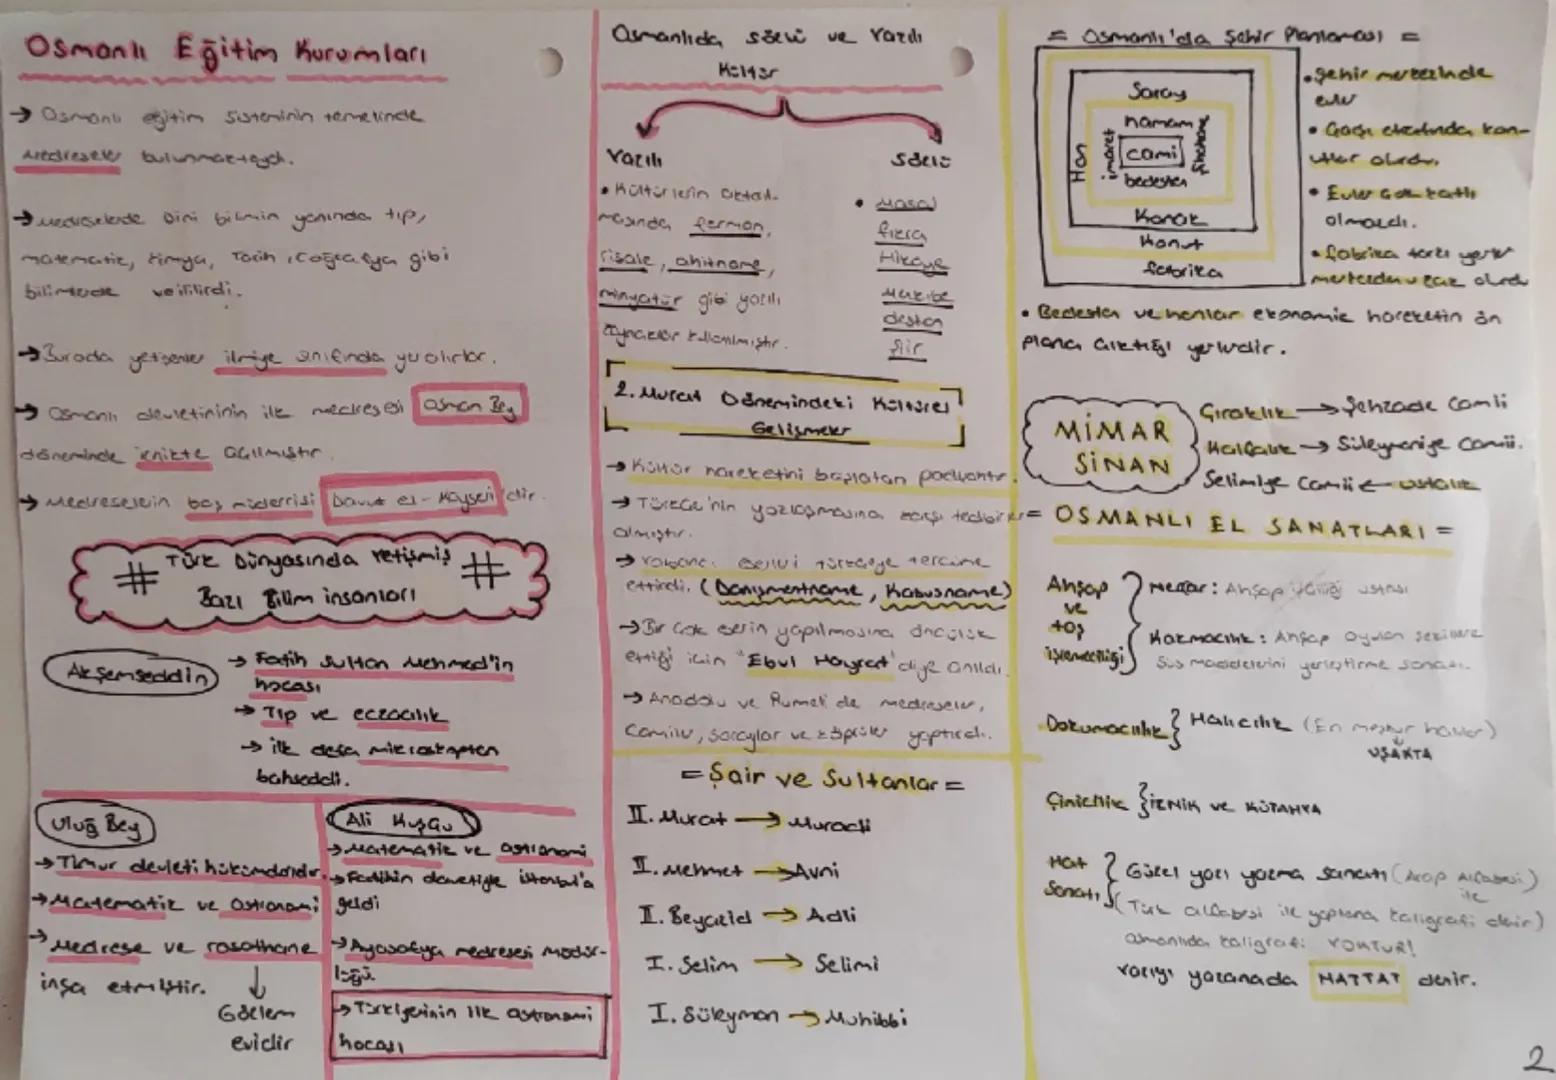 Osmanlı Eğitim Kurumları
→ Osmanlı eğitim sisteminin temelinde
medreseler bulunmaktaydı.
→ Medreselerde Dini bilimin yanında tıp,
matematik, kimya, Tarih, Coğrafya gibi
bilimlerde verilirdi.
→ Burada yetişenler ilmiye sınıfında yer alırlar.
→ Osmanlı devletininin ilk medresesi Osman Bey
döneminde iznikte açılmıştır.
→ Medreselerin baş müderrisi Davut el-Kayseri'dir.
# Türk Dünyasında Yetişmiş #
Bazı Bilim insanları
Akşemseddin
→ Fatih Sultan Mehmed'in
hocası
→ Tıp ve eczacılık
→ ilk defa mikroskoptan
bahseddi.
Uluğ Bey
→ Timur devleti hükümdarıdır.
→ Matematik ve astronomi
→ Medrese ve rasathane
inşa etmiştir.
↓
Gözlem
evidir
Ali Kuşçu
→ Matematik ve astronomi
→ Fatihin davetiyle istanbul'a
geldi
→ Ayasofya medresesi müdür-
lüğü
→ Türkiyenin ilk astronomi
hocası
Osmanlıda sözlü ve Yazılı
Kültür
Yazılı
• Kültürlerin aktarıl-
masında ferman,
risale, ahitname,
minyatür gibi yazılı
kaynaklar kullanılmıştır.
sözlü
• Masal
fıkra
Hikaye
Menkıbe
destan
şiir
2. Murat Dönemindeki Kültürel
Gelişmeler
→ Kültür hareketini başlatan padişahtır.
→ Türkçe'nin yozlaşmasına karşı tedbirler
almıştır.
→ Yabancı eserleri türkçeye tercüme
ettirdi. (Danışmentname, Kabusname)
→ Bir çok eserin yapılmasına öncülük
ettiği için "Ebul Hayrat" diye anıldı.
→ Anadolu ve Rumeli de medreseler,
Camiler, saraylar ve köprüler yaptırdı.
= Şair ve Sultanlar =
II. Murat → Muradi
II. Mehmet → Avni
II. Beyazid → Adli
I. Selim → Selimi
I. Süleyman → Muhibbi
= Osmanlı'da Şehir Planlaması =
Saray
hamam
Han
imaret
cami
Şifahane
bedesten
Konak
Konut
fabrika
• Şehir merkezinde
evler
• Geçi etrafında kon-
utlar olurdu.
• Evler çok katlı
olmazdı.
• fabrika tarzı yerler
merkezden uzak olurdu
• Bedesten ve hanlar ekonomik hareketin ön
plana çıktığı yerlerdir.
MİMAR
SİNAN
Çıraklık → Şehzade Camii
Kalfalık → Süleymaniye Camii.
Selimiye Camii ← ustalık
= OSMANLI EL SANATLARI =
Ahşap
ve
taş
işlemeciliği
Neccar: Ahşap ustası
Kakmacılık: Ahşap oyulan şekillere
Süs maddelerini yerleştirme sanatı.
Dokumacılık } Halıcılık (En meşhur halılar)
↓
UŞAKTA
Çinicilik } İZNİK ve KÜTAHYA
Hat
Sanatı
Güzel yazı yazma sanatı (Arap Alfabesi)
ile
(Türk alfabesi ile yapılana kaligrafi denir)
osmanlıda kaligrafi YOKTUR!
Yazıyı yazanada HATTAT denir.
2